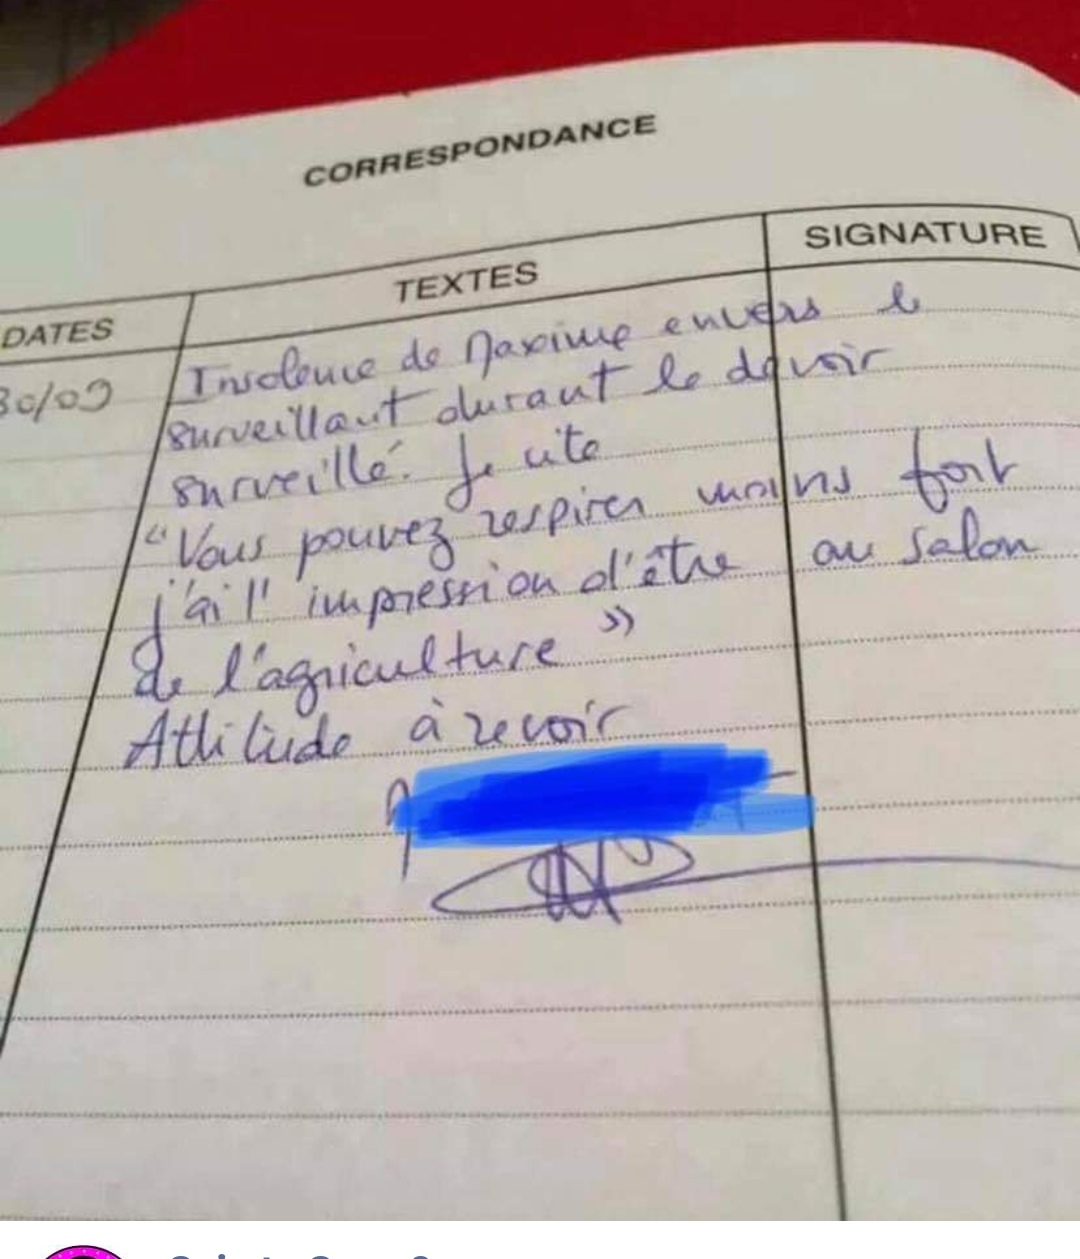 CORRESPONDANCE
DATES TEXTES SIGNATURE
30/09 Insolence de Maxime envers le
surveillant durant le devoir
surveillé. Je cite
"Vous pouvez respirer moins fort
j'ai l'impression d'être au salon
de l'agriculture »
Attitude à revoir